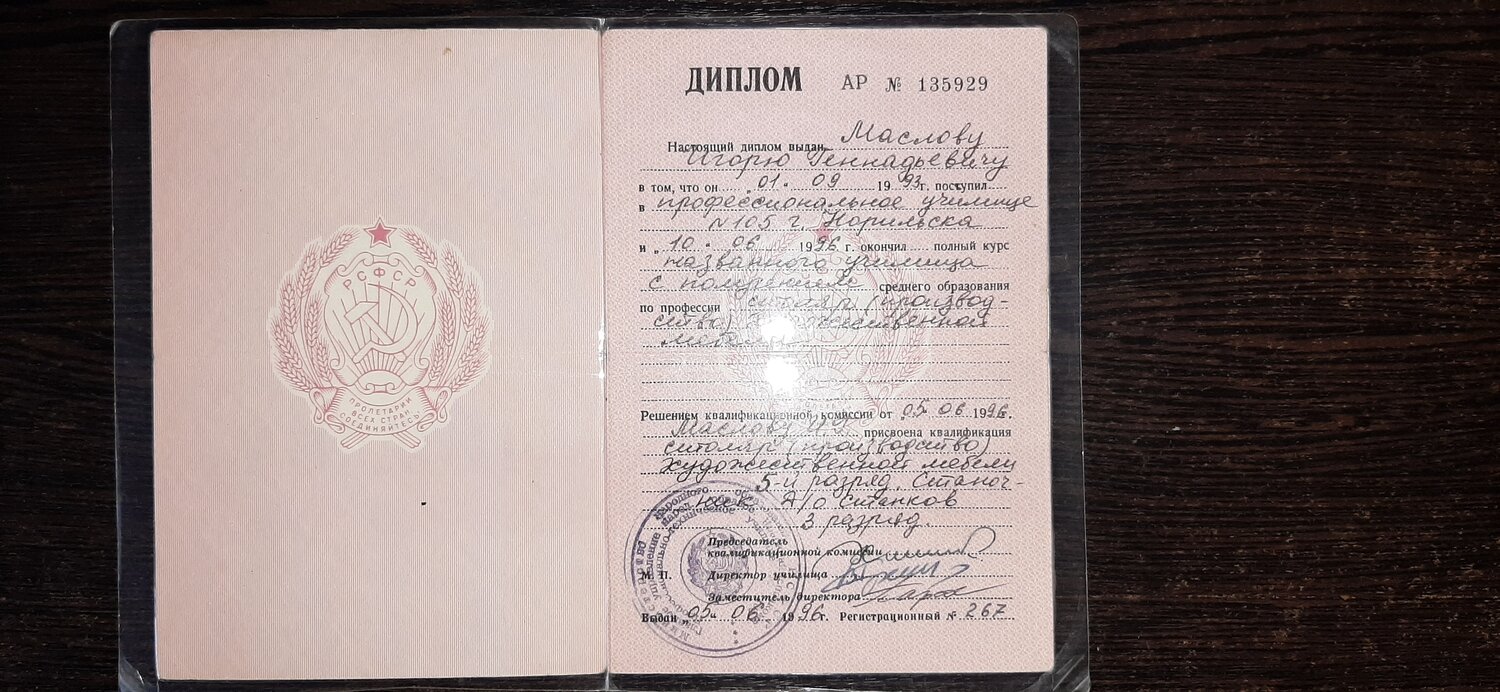 РСФСР
ПРОЛЕТАРИИ
ВСЕХ СТРАН
СОЕДИНЯЙТЕСЬ
ДИПЛОМ АР № 135929
Настоящий диплом выдан Маслову
Игорю Геннадьевичу
в том, что он „01" 09 1993г. поступил
в профессиональное училище
N105 г. Норильска
и „10" 06 1996 г. окончил полный курс
названного училища
с получением среднего образования
по профессии столяр (производ-
ство) художественной
мебели
Решением квалификационной комиссии от „05" 06 1996г.
Маслову присвоена квалификация
столяр (производство)
художественной мебели
5-й разряд. Станоч-
ник д/о станков
3 разряд.
Председатель
квалификационной комиссии
М. П. Директор училища
Заместитель директора
Выдан „05" 06 1996г. Регистрационный № 267